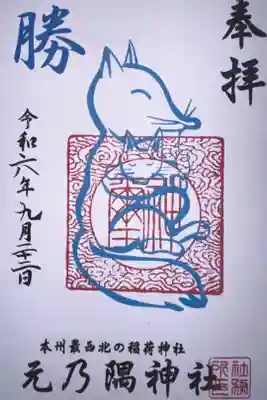 奉拝
勝
令和六年九月
本州最西北の稲荷神社
元乃隅神社
社務所印